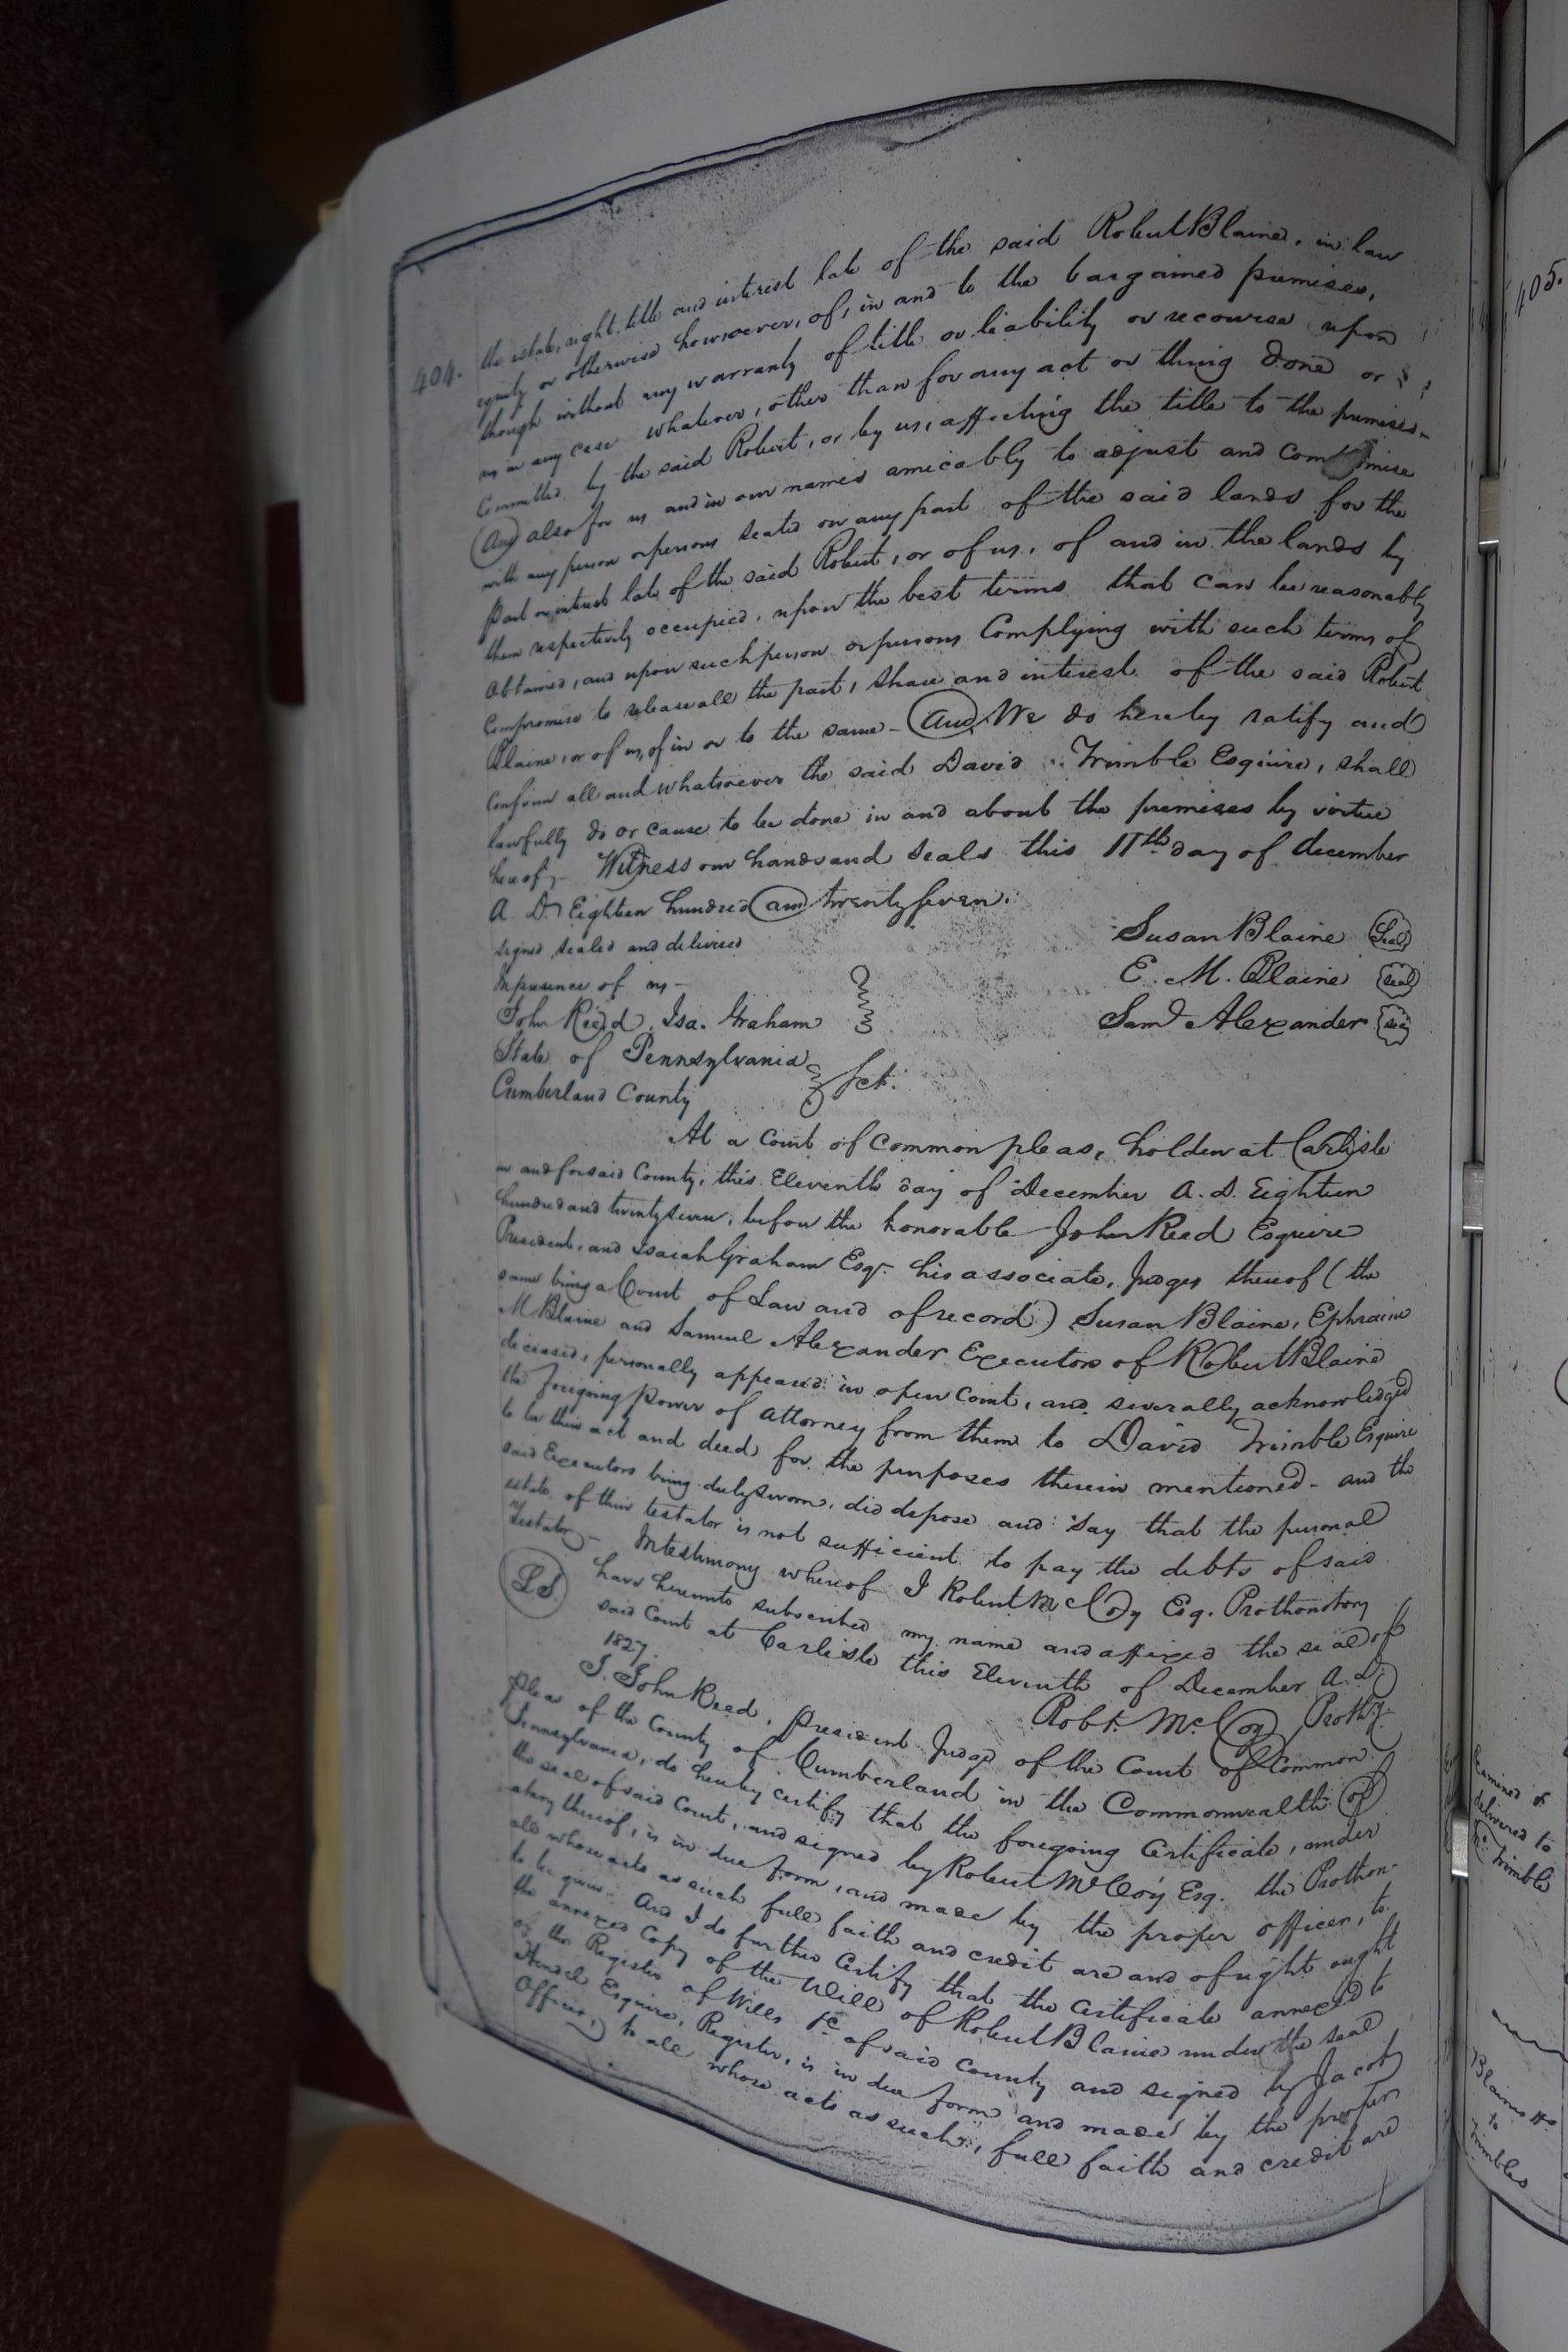 404.
the estate, right, title and interest late of the said Robert Blaine, in law
equity or otherwise howsoever, of, in and to the bargained premises,
though without any warranty of title or liability or recourse upon
us in any case whatever, other than for any act or thing done or
Committed by the said Robert, or by us, affecting the title to the premises-
(And) also for us and in our names amicably to adjust and compromise
with any person or persons seated on any part of the said lands for the
part or interest late of the said Robert, or of us, of and in the lands by
them respectively occupied, upon the best terms that can be reasonably
obtained, and upon such person or persons Complying with such terms of
Compromise to release all the part, share and interest of the said Robert
Blaine, or of us, of in or to the same - (And) We do hereby ratify and
Confirm all and whatsoever the said David Trimble Esquire, shall
lawfully do or cause to be done in and about the premises by virtue
hereof,- Witness our hands and seals this 11th day of december
A. D. Eighteen hundred and twenty seven.
signed, sealed and delivered
In presence of us -
John Reed, Isa. Graham
Susan Blaine (Seal)
E. M. Blaine (seal)
Saml Alexander (seal)
State of Pennsylvania
Cumberland County
Sct.
At a Court of Common pleas, holden at Carlisle
in and for said County, this Eleventh day of December A. D. Eighteen
hundred and twenty seven, before the honorable John Reed Esquire
President, and Isaiah Graham Esqr. his associate, Judges thereof (the
same being a Court of Law and of record) Susan Blaine, Ephraim
M Blaine and Samuel Alexander Executors of Robert Blaine
deceased, personally appeared in open Court, and severally acknowledged
the foregoing power of attorney from them to David Trimble Esquire
to be their act and deed for the purposes therein mentioned - and the
said Executors being duly sworn, did depose and say that the personal
estate of their testator is not sufficient to pay the debts of said
Testator - In testimony whereof I Robert McCoy Esq. Prothonotary
have hereunto subscribed my name and affixed the seal of
(L.S.)
said Court at Carlisle this Eleventh of December A. D.
1827.
Robt. McCoy Prothy.
I. John Reed, President Judge of the Court of Common
pleas of the County of Cumberland in the Commonwealth of
Pennsylvania, do hereby certify that the foregoing Certificate, under
the seal of said Court, and signed by Robert McCoy Esq. the Prothon-
otary thereof, is in due form, and made by the proper officer, to
all whose acts as such full faith and credit are and of right ought
to be given. And I do further Certify that the Certificate annexed to
the annexed Copy of the Will of Robert Blaine under the seal
of the Register of Wills &c of said County and signed by Jacob
Hendel Esquire, Register, is in due form and made by the proper
Officer, to all whose acts as such, full faith and credit are
405.
Examined &
delivered to
Trimble
Blaines
to
Trimbles